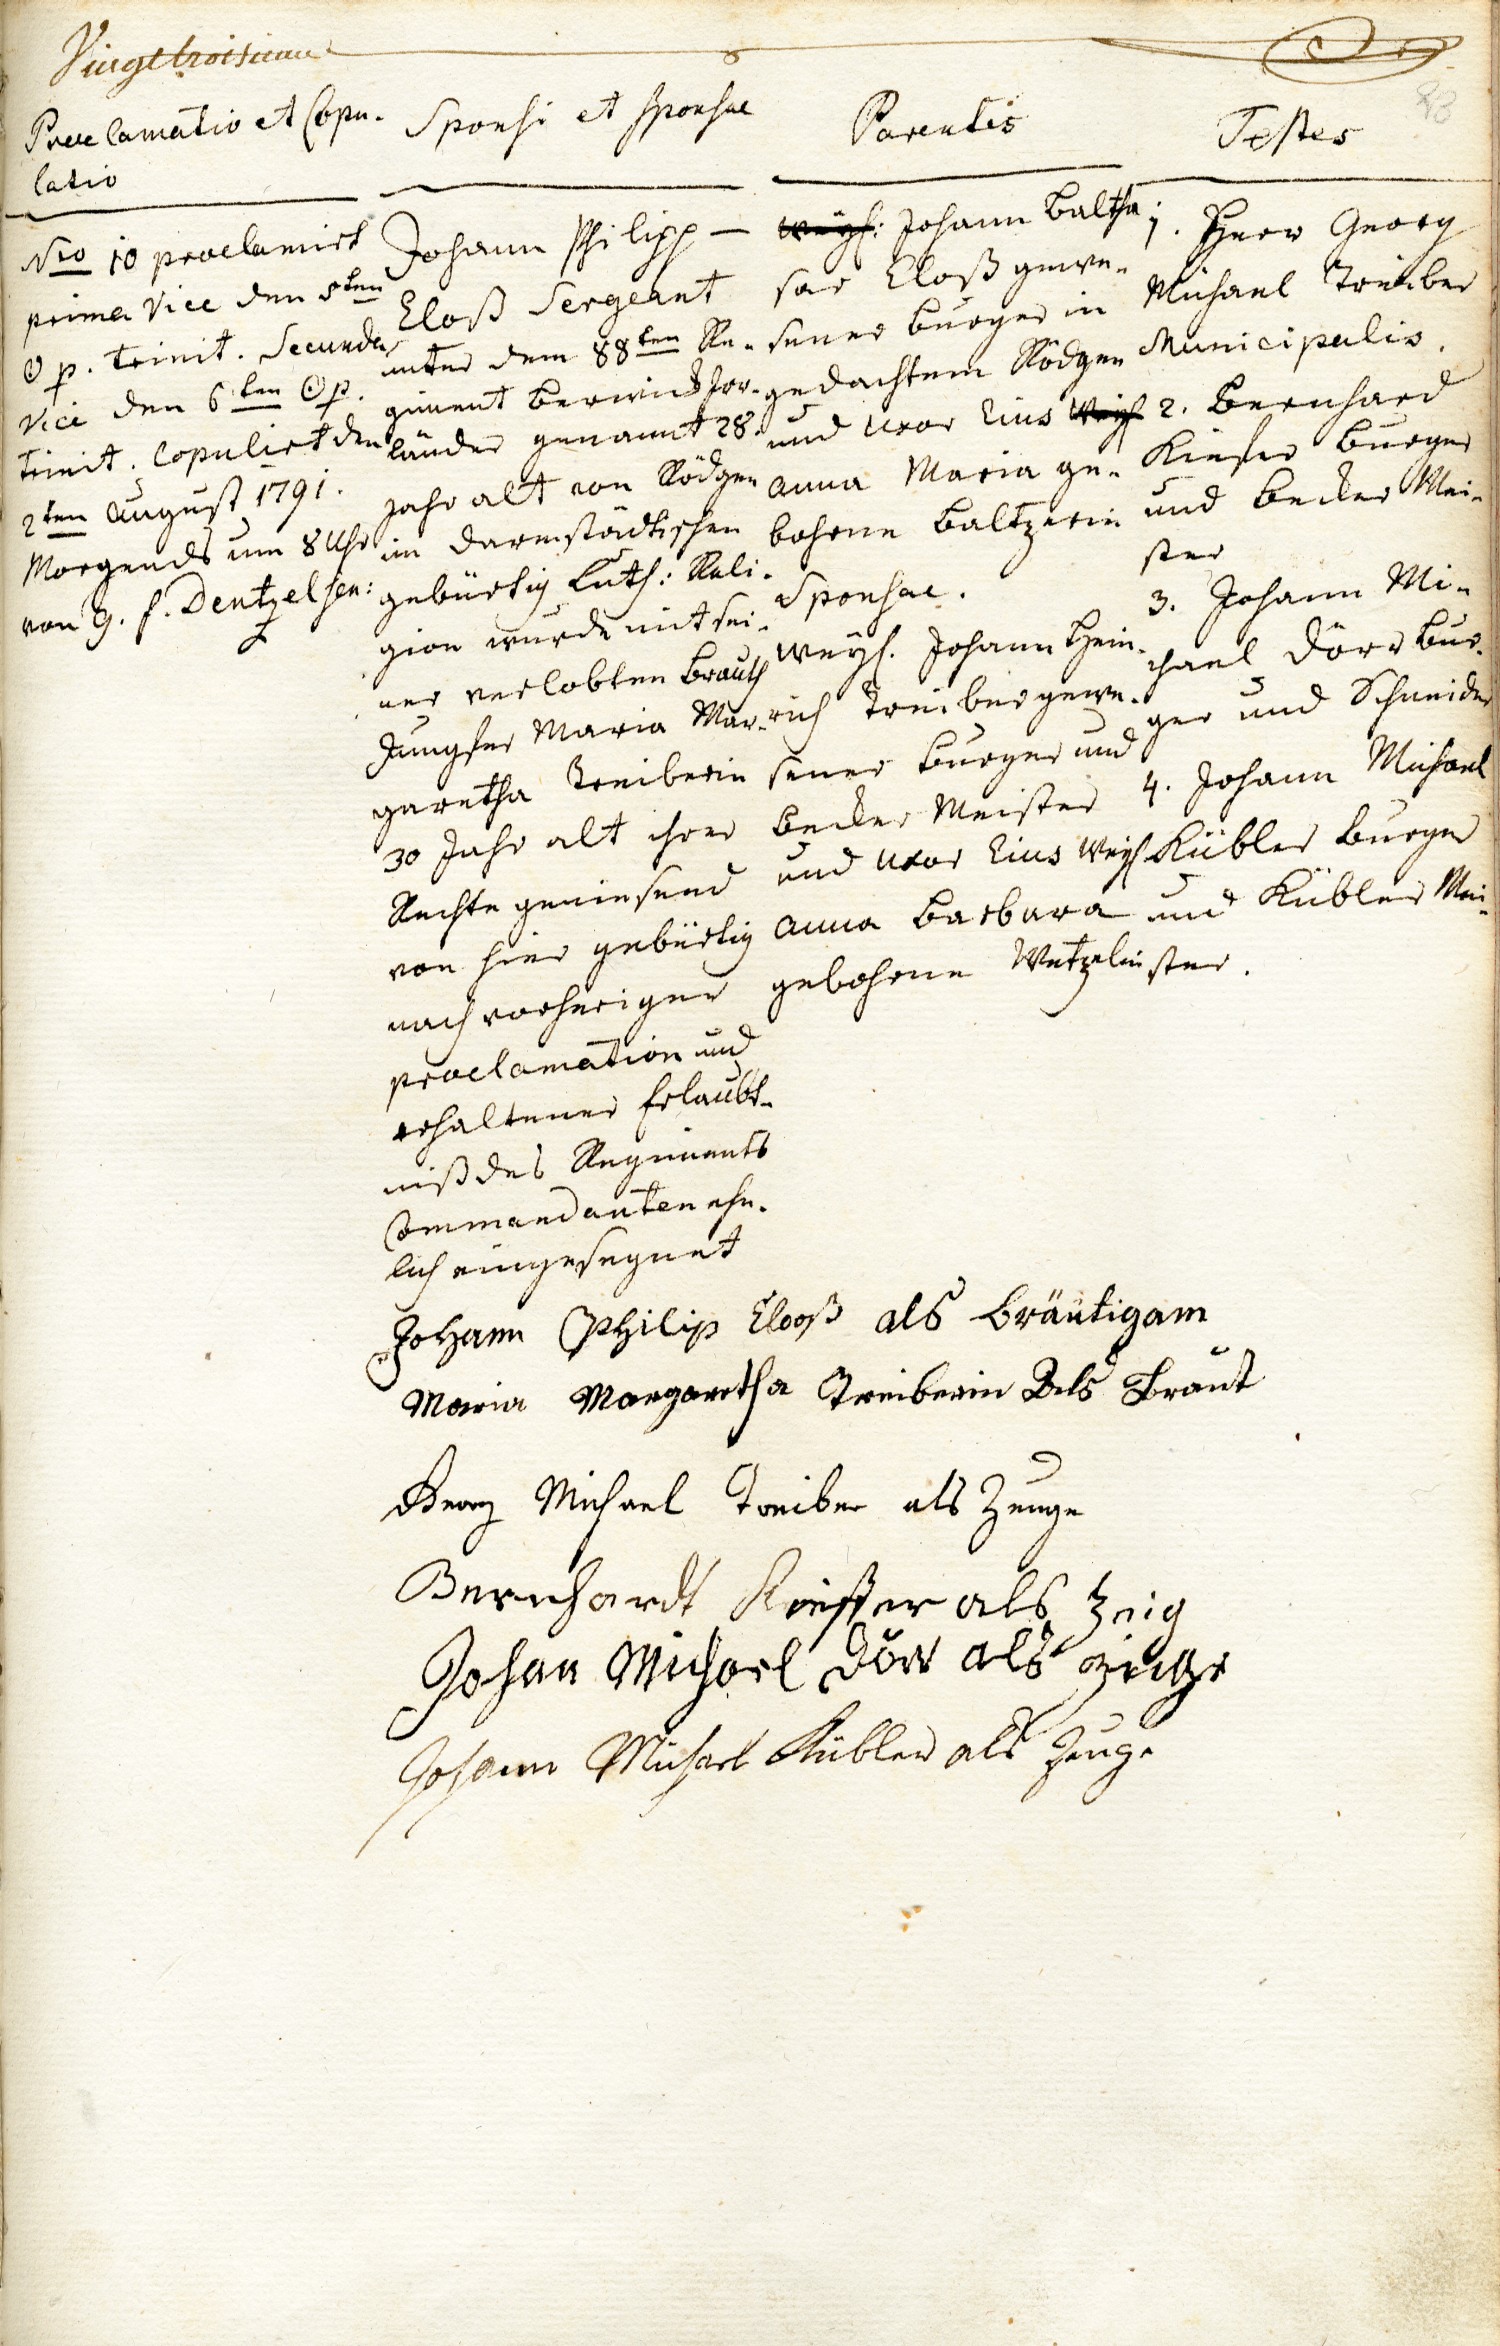 Vingttroisieme
23
Proclamatio et Copu-
latio
Nro 10 proclamirt
prima Vice den 5ten
☉ p. Trinit. Secunda
Vice den 6ten ☉ p.
Trinit. Copulirt den
2ten August 1791.
Morgends um 8 Uhr
von G. F. Dentzel sen:
Sponsi et Sponsae
Johann Philipp –
Eloß Sergeant
unter dem 88ten Re-
giment Berwick Jrr-
länder genannt 28.
Jahr alt von Rödgen
im Darmstädtischen
gebürtig Luth: Reli-
gion wurde mit sei-
ner verlobten Brauth
Jungfer Maria Mar-
garetha Treiberin
30 Jahr alt ihrer
Rechte geniesend
von hier gebürtig
nach vorheriger
proclamation und
erhaltener Erlaubt-
niß des Regiments
Commandanten ehe-
lich eingesegnet
Parentis
weyh: Johann Baltha
sar Eloß gewe-
sener Burger in
gedachtem Rödgen
und uxor Eius weyh
Anna Maria ge-
bohrne Baltzerin
Sponsae.
Weyh. Johann Hein-
rich Treiber gewe-
sener Burger und
Becker Meister
und uxor Eius Weyh
Anna Barbara
gebohrne Wetzelin
Testes
1. Herr Georg
Michael Treiber
Municipalis.
2. Bernhard
Kieser Burger
und Becker Mei-
ster
3. Johann Mi-
chael Dörr Bur-
ger und Schneider
4. Johann Michael
Kübler Burger
und Kübler Mei-
ster.
Johann Philip Elooß als Bräutigam
Maria Margaretha Treiberin Als Braut
Georg Michael Treiber als Zeuge
Bernhardt Kiesser als Zeig
Johan Michael Dörr als Zeuge
Johann Michael Kübler als Zeuge